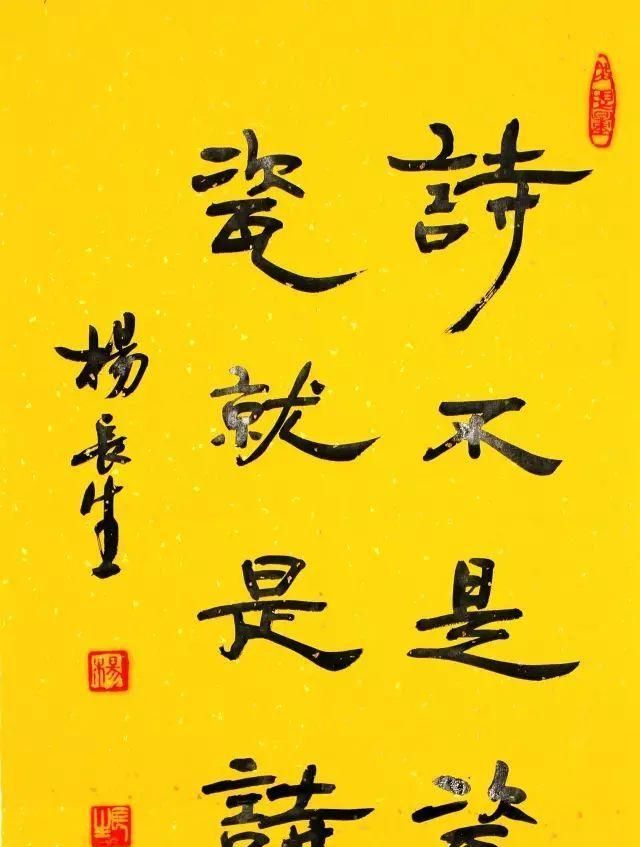 詩不是瓷
瓷就是詩
楊長生
楊